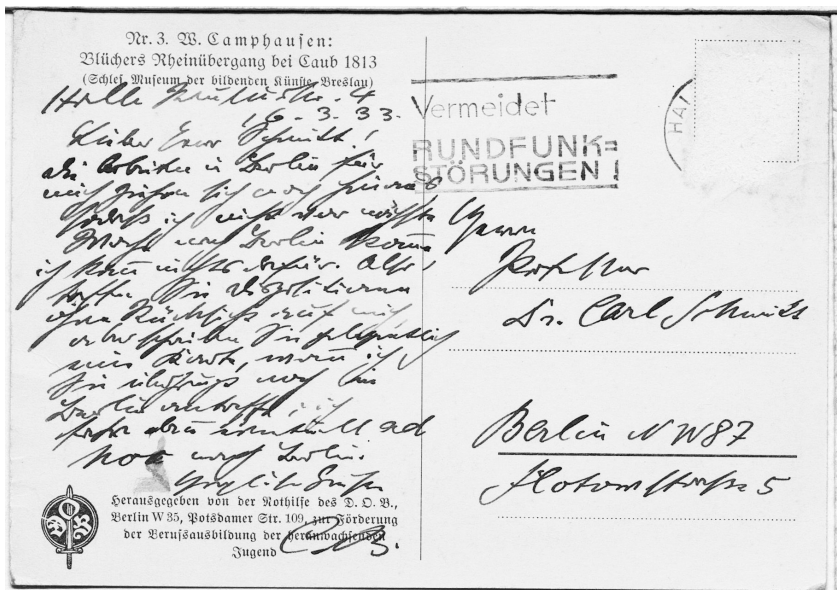 Nr. 3. W. Camphausen:
Blüchers Rheinübergang bei Caub 1813
(Schles. Museum der bildenden Künste, Breslau)
Halle
3. 33.
Lieber Herr Schmitt!
die Arbeiten in Berlin für
mich ziehen sich noch hinaus
sodass ich nicht vor
nach Berlin komme
ich kann nichts dafür. Also,
Sie disponieren
ohne Rücksicht auf mich
aber schreiben Sie gelegentlich
eine Karte, wann ich
Sie übrigens noch in
Berlin antreffe, ich
eventuell ad
hoc nach Berlin.
Herzliche Grüße
CB.
Herausgegeben von der Nothilfe des D. O. B.,
Berlin W 35, Potsdamer Str. 109, zur Förderung
der Berufsausbildung der heranwachsenden
Jugend
Vermeidet
RUNDFUNK=
STÖRUNGEN!
HA
Herrn
Professor
Dr. Carl Schmitt
Berlin NW87
Flotowstrasse 5